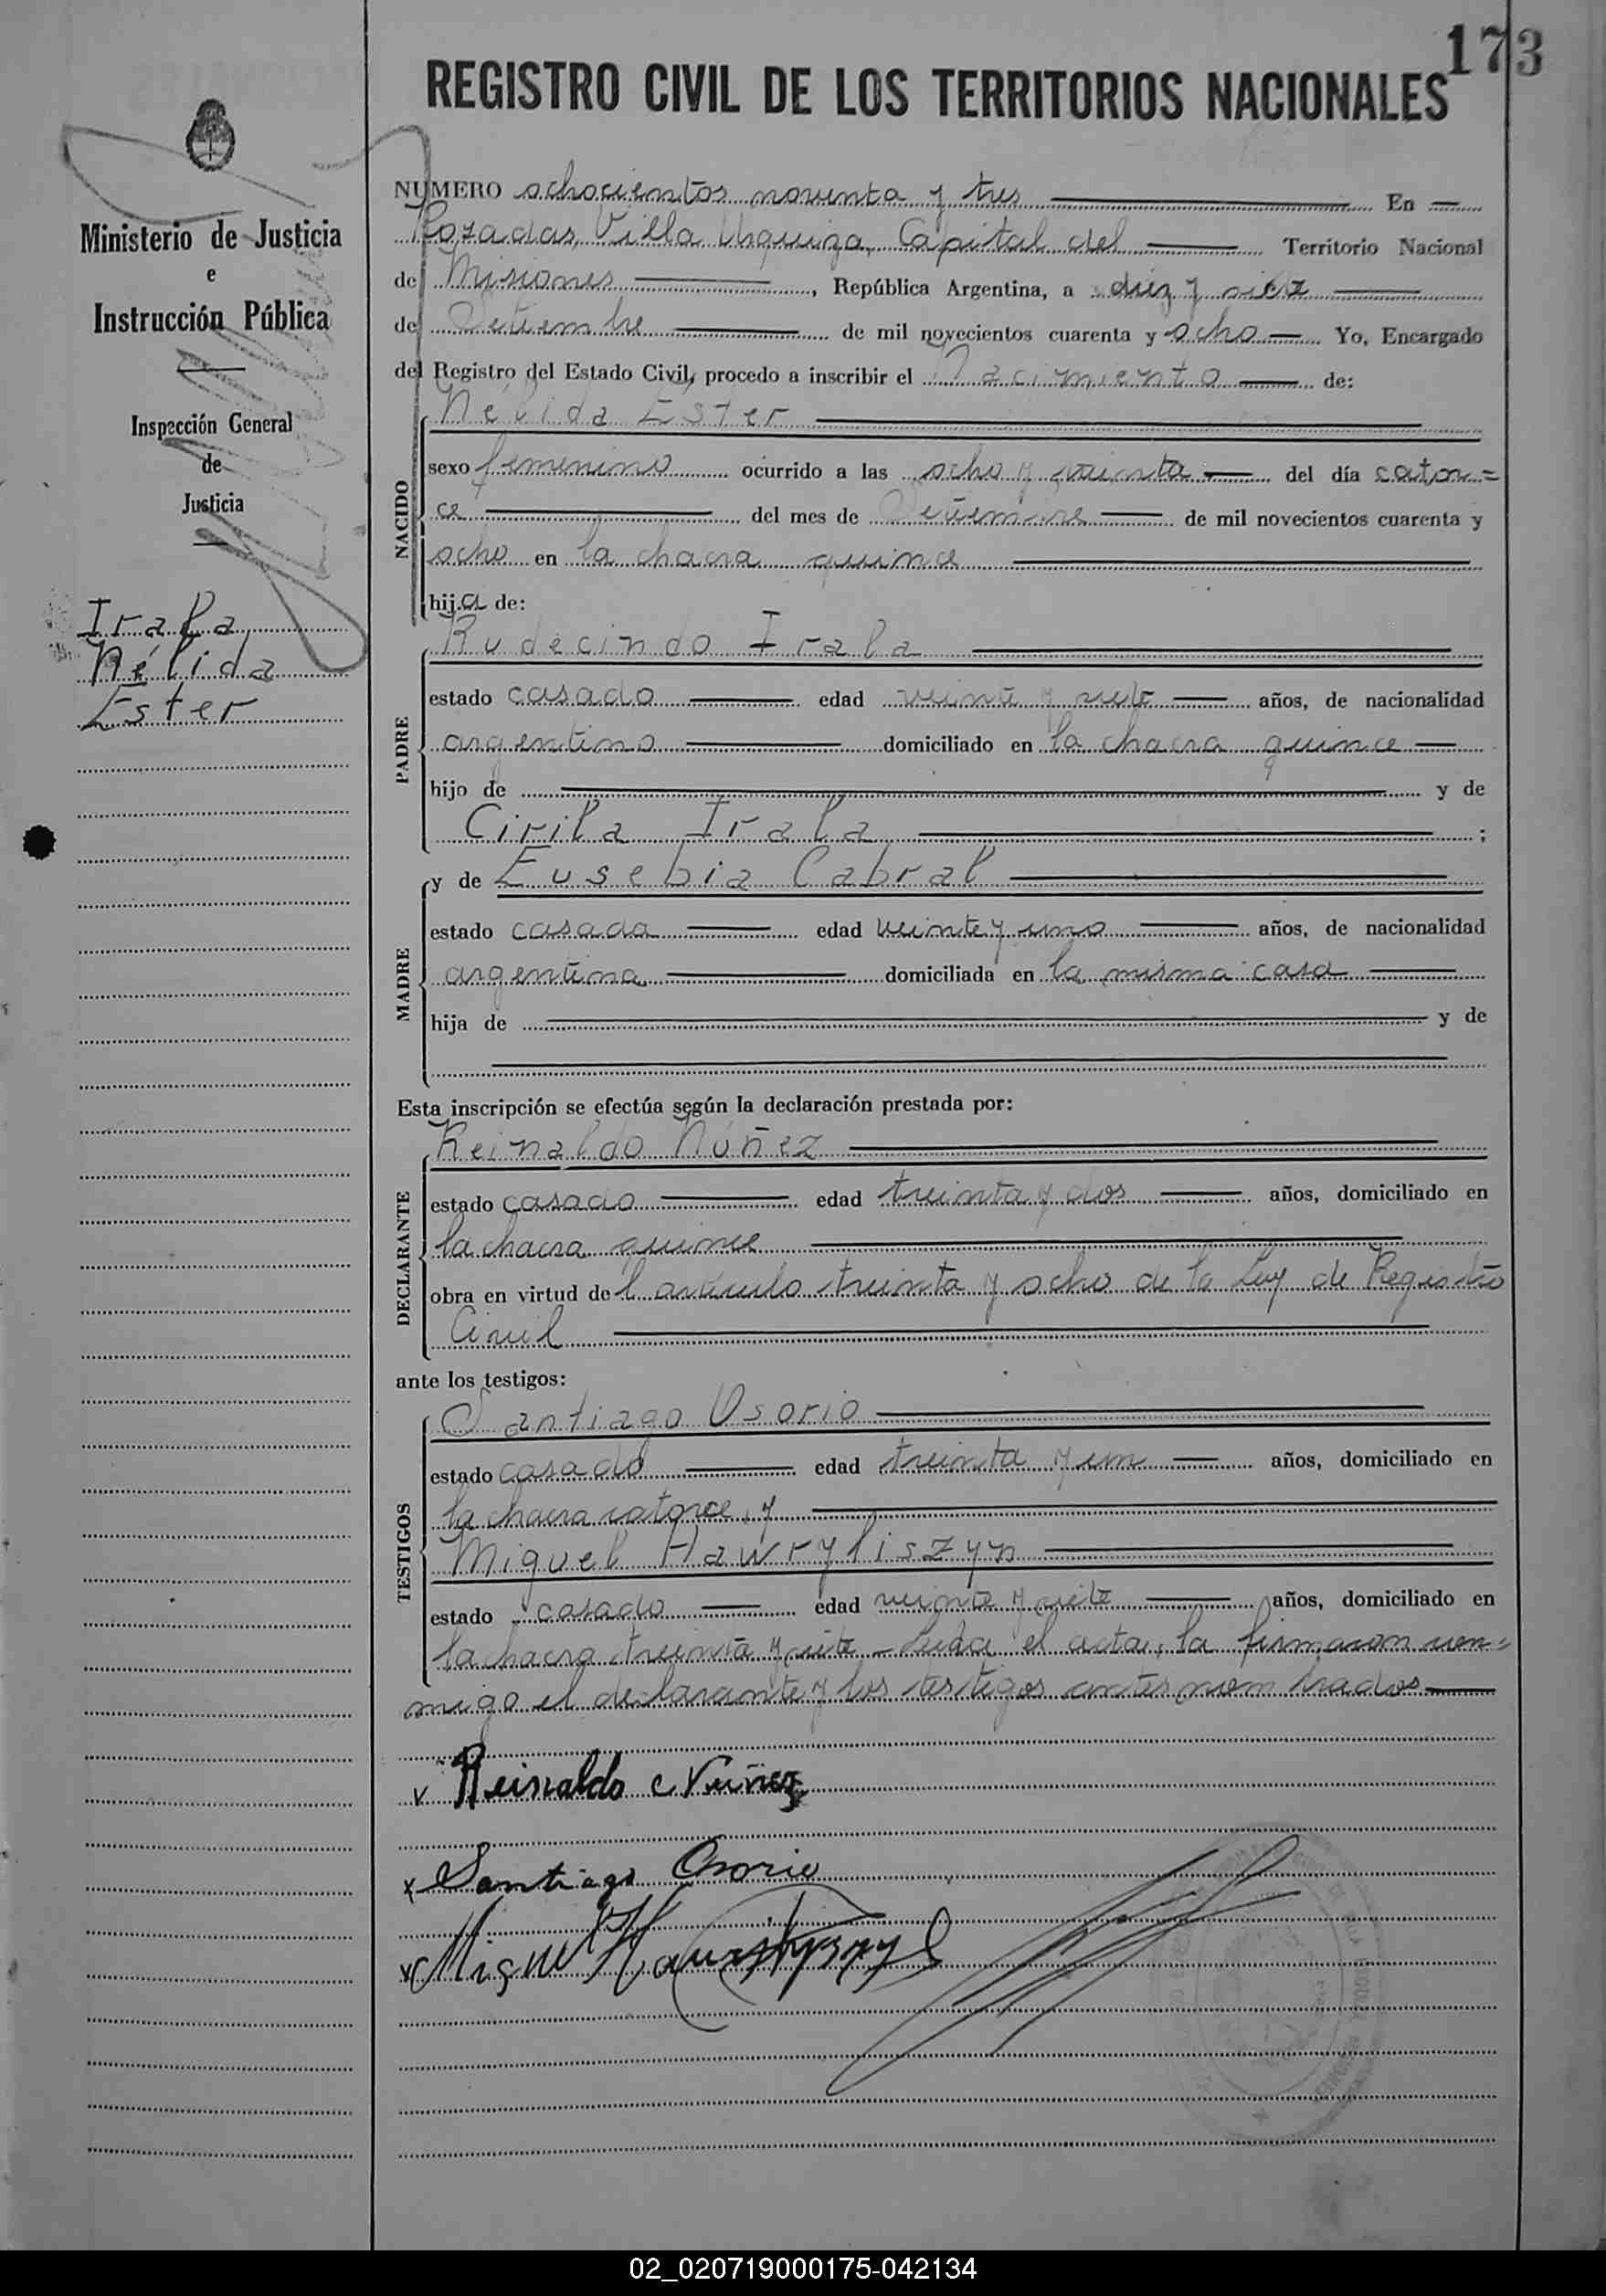 173
REGISTRO CIVIL DE LOS TERRITORIOS NACIONALES
Ministerio de Justicia
e
Instrucción Pública
Inspección General
de
Justicia
Irala
Nélida
Ester
NUMERO ochocientos noventa y tres En
Posadas, Villa Urquiza, Capital del Territorio Nacional
de Misiones, República Argentina, a diez y siete
de Setiembre de mil novecientos cuarenta y ocho Yo, Encargado
del Registro del Estado Civil, procedo a inscribir el Nacimiento de:
NACIDO
Nélida Ester
sexo femenino ocurrido a las ocho y treinta del día cator=
ce del mes de Setiembre de mil novecientos cuarenta y
ocho en la chacra quince
hija de:
PADRE
Rudecindo Irala
estado casado edad veinte y siete años, de nacionalidad
argentino domiciliado en la chacra quince
hijo de y de
Cirila Irala ;
MADRE
y de Eusebia Cabral
estado casada edad veinte y uno años, de nacionalidad
argentina domiciliada en la misma casa
hija de y de
Esta inscripción se efectúa según la declaración prestada por:
DECLARANTE
Reinaldo Núñez
estado casado edad treinta y dos años, domiciliado en
la chacra quince
obra en virtud del artículo treinta y ocho de la Ley de Registro
Civil
ante los testigos:
TESTIGOS
Santiago Osorio
estado casado edad treinta y un años, domiciliado en
la chacra catorce, y
Miguel Hawryliszyn
estado casado edad veinte y siete años, domiciliado en
la chacra treinta y siete - Leída el acta, la firmaron con=
migo el declarante y los testigos antes nombrados
Reinaldo Nuñez
Santiago Osorio
Miguel
02_020719000175-042134